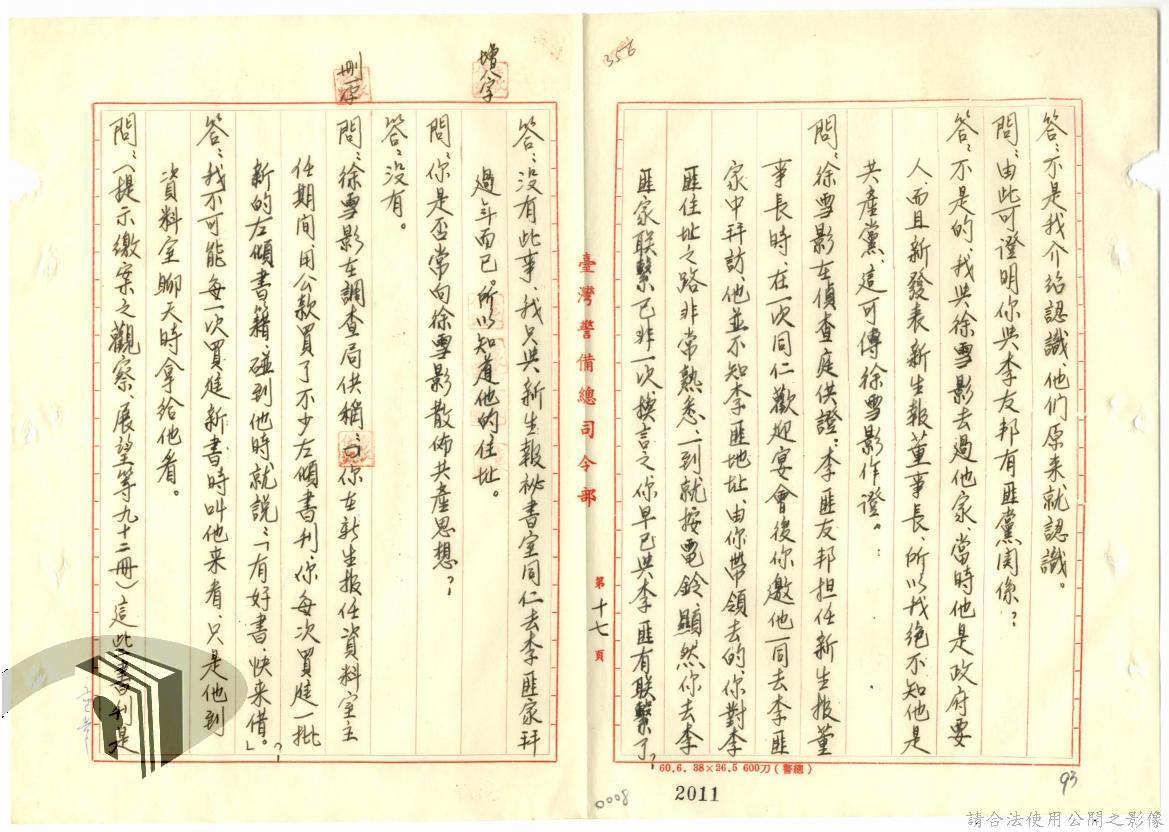 356
答：不是我介绍認識、他们原来就認識。
問：由此可證明你与李友邦有匪黨関係？
答：不是的、我與徐雪影去過他家、當時他是政府要
人、而且新發表新生報董事長、所以我绝不知他是
共產黨、這可傳徐雪影作證。
問：徐雪影在偵查庭供證：李匪友邦担任新生报董
事長時、在一次同仁歡迎宴會後你邀他一同去李匪
家中拜訪、他並不知李匪地址、由你帶領去的、你對李
匪住址之路非常熟悉、一到就按電鈴、顯然你去李
匪家联繫已非一次、換言之你早已與李匪有联繫了？
臺灣警備總司令部
第十七頁
增八字
答：没有此事、我只與新生報祕書室同仁去李匪家拜
過年而已、所以知道他的住址。
問：你是否常向徐雪影散佈共產思想？
答：没有。
刪一字
問：徐雪影在調查局供稱：曰你在新生报任資料室主
任期间、用公款買了不少左傾書刊、你每次買進一批
新的左傾書籍、碰到他時就説：「有好書、快来借。」？
答：我不可能每一次買進新書時叫他来看、只是他到
資料室聊天時拿给他看。
問：（提示繳案之觀察、展望等九十二冊）這些書刊是
60.6. 38×26.5 600刀（警總）
93
0008
2011
請合法使用公開之影像